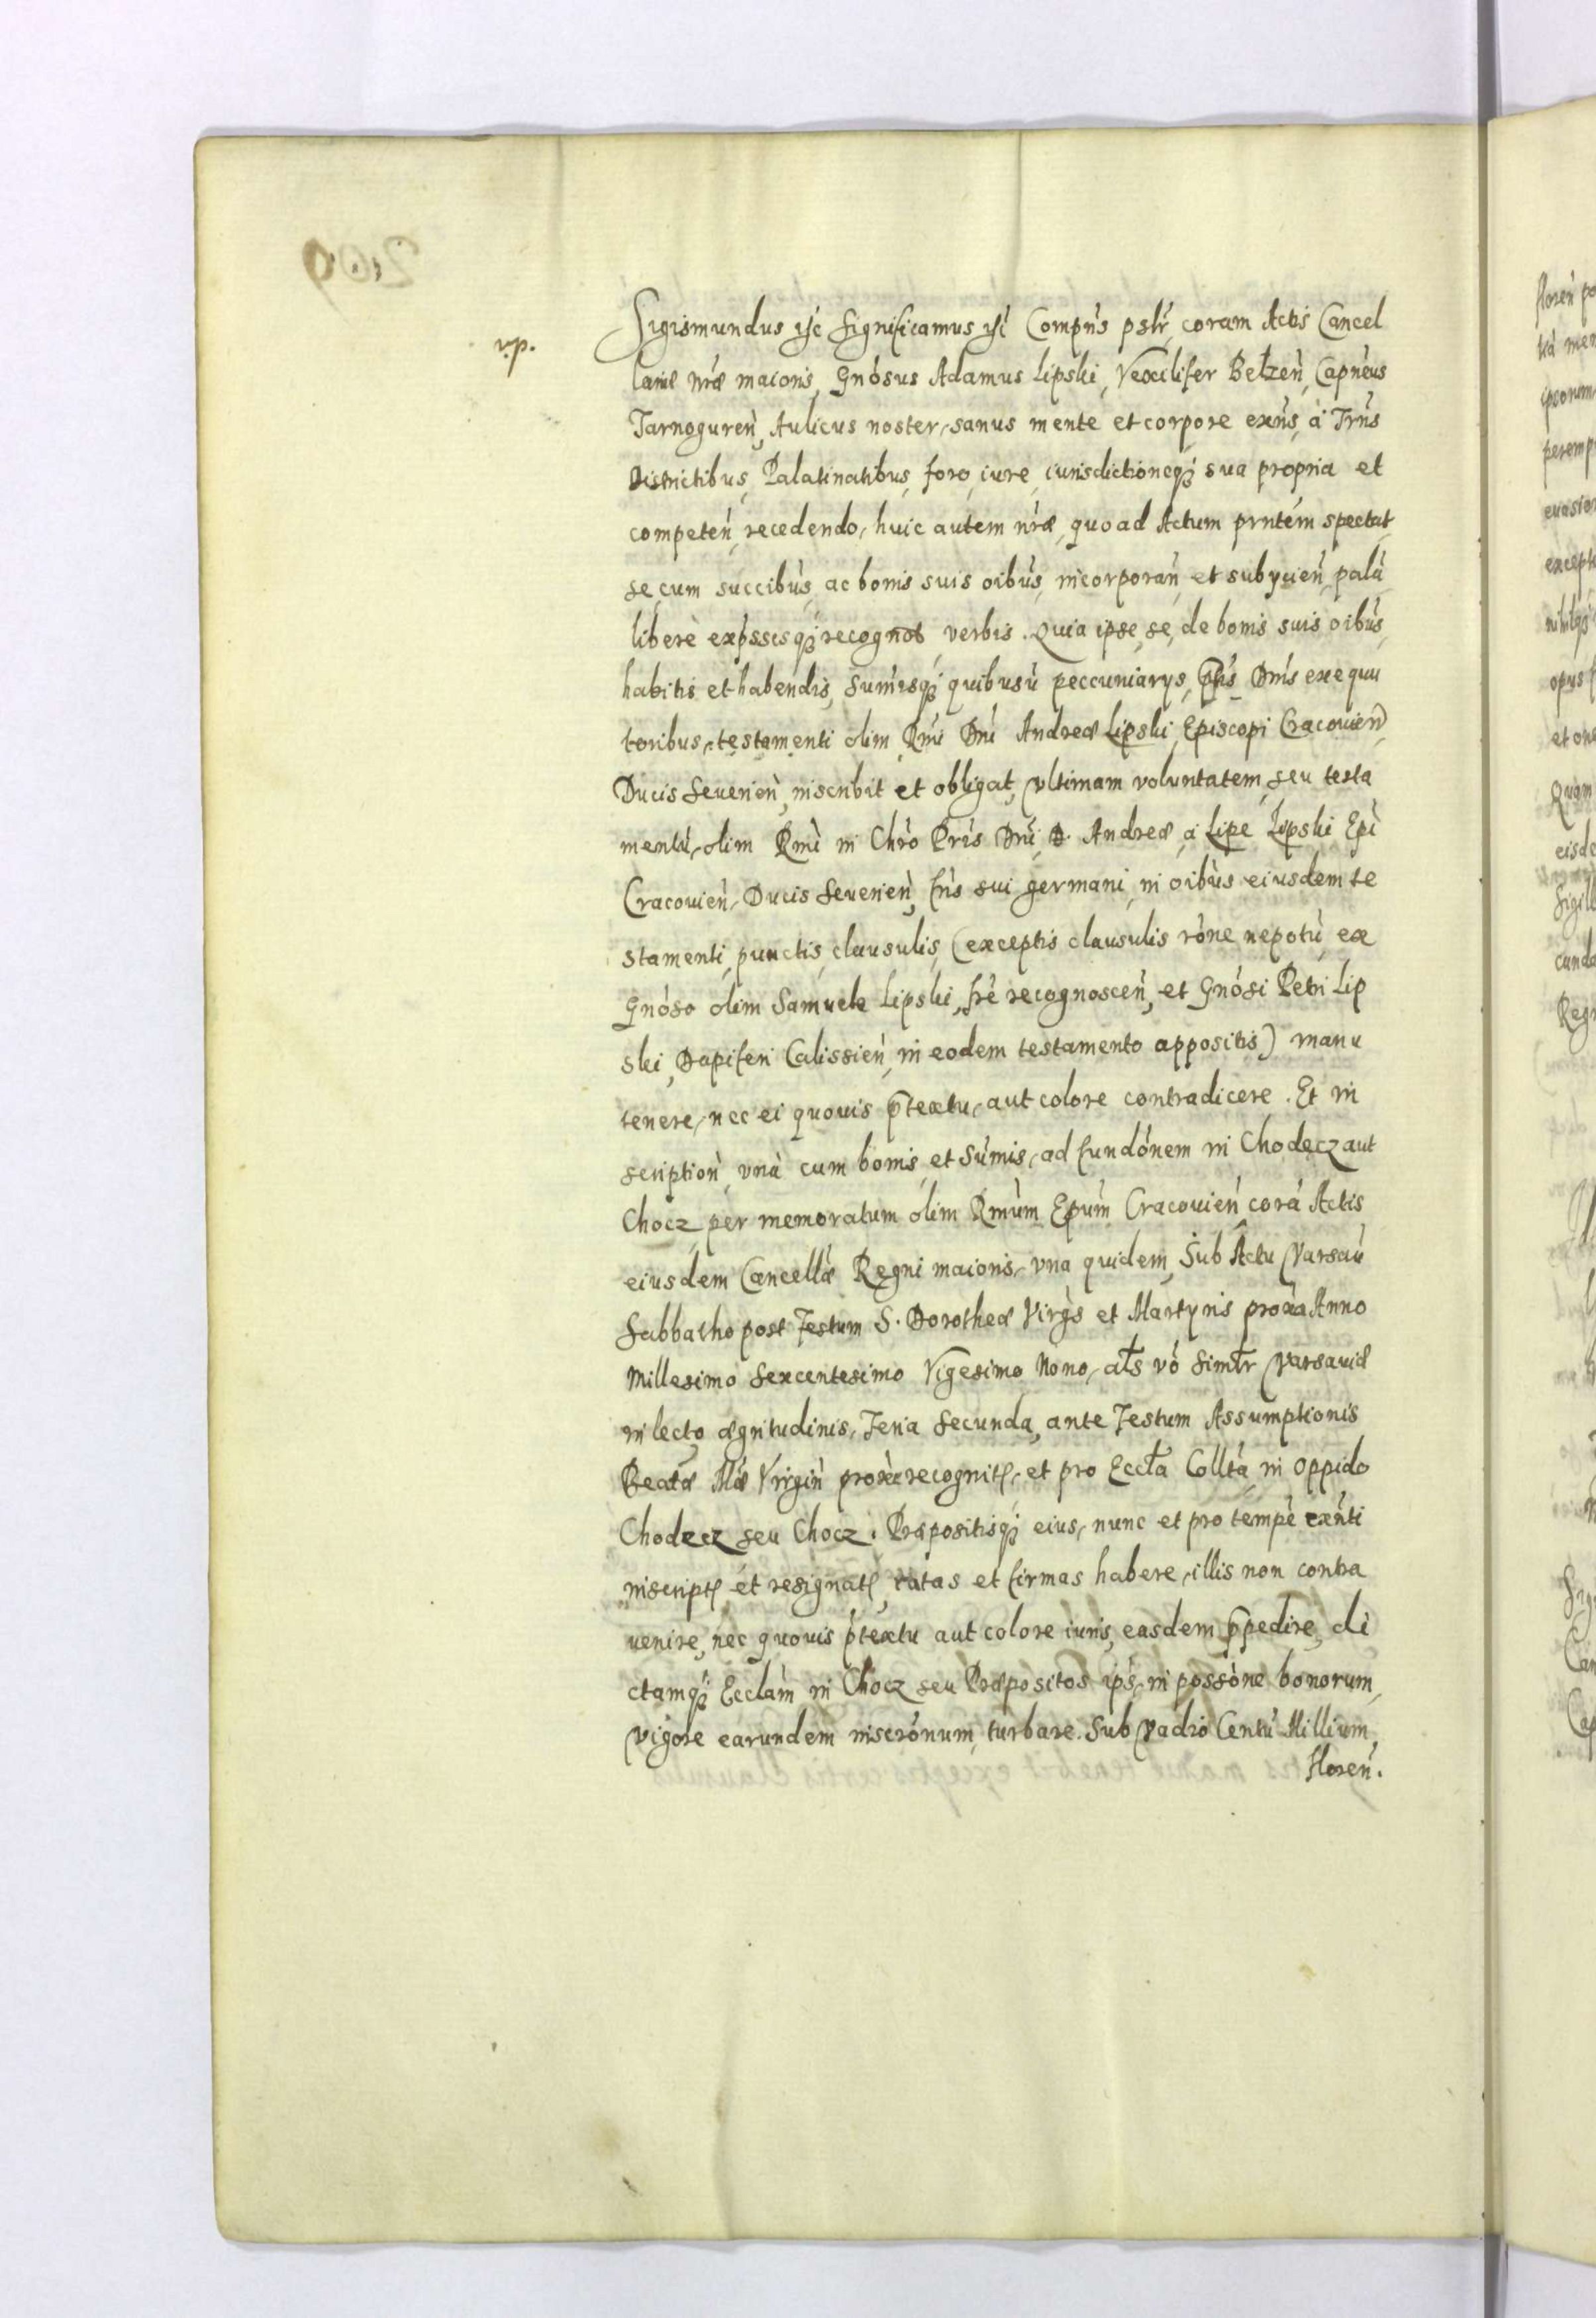 vp.
Sigismundus etc Significamus etc Compn̄s pslr̄, coram Actis Cancel
lariæ nr̄æ maioris, Gnósus Adamus Lipski, Vexillifer Bełzen̄, Capnéus
Tarnoguren̄, Aulicus noster, sanus mente et corpore exn̄s, à Trn̄s
Districtibus, Palatinatibus, foro, iure, iurisdictioneq; sua propria et
competen̄, recedendo, huic autem nr̄æ, quo ad Actum prn̄tem spectat,
se, cum succibus, ac bonis suis oībus, incorporan̄ et subycien̄, palā
liberè expssisq; recognot verbis. Quia ipse, se, de bonis suis oībus,
habitis et habendis, Sum̄isq; quibusū peccuniarys, Dnīs exequu
toribus, testamenti olim Rmī Dnī Andreæ Lipski, Episcopi Cracouien̄,
Ducis Seuerien̄, inscribit et obligat, vltimam voluntatem, seu testa
mentū, olim Rmī in Chrō Prīs Dnī, D. Andreæ, à Lipe Lipski Epī
Cracouien̄, Ducis Seuerien̄, frīs sui germani, in oībus eiusdem te
stamenti, punctis, clausulis, (exceptis clausulis rōne nepotū ex
Gnóso olim Samuele Lipski, fre recognoscen̄, et Gnósi Petri Lip
ski, Dapiferi Calissien̄, in eodem testamento appositis) manu
tenere, nec ei quouis p̄textu, aut colore contradicere. Et in
scription̄, vnà cum bonis, et Sum̄is, ad fundōnem in Chodecz aut
Chocz, per memoratum olim Rmūm Epūm Cracouien̄ corā Actis
eiusdem Cancellæ Regni maioris, vna quidem, Sub Actu Varsaū
Sabbatho post Festum S. Dorotheæ Virgs et Martyris proxa Anno
Millesimo Sexcentesimo Vigesimo Nono, ałs vō Simłr Varsauiæ
in lecto ægritudinis, Feria Secunda, ante Festum Assumptionis
Beatæ Mæ Virgin̄ proxe recognit, et pro Eccła Collta, in oppido
Chodecz seu Chocz. Præpositisq; eius, nunc et pro tempe exn̄ti
inscript, et resignat, ratas et firmas habere, illis non contra
uenire, nec quouis p̄textu aut colore iuris, easdem p̄pedire, di
ctamq; Ecclām in Chocz seu Præpositos ips, in possōne bonorum,
vigore earundem inscrōnum, turbare. Sub vadio Centū Millium,
floren̄.